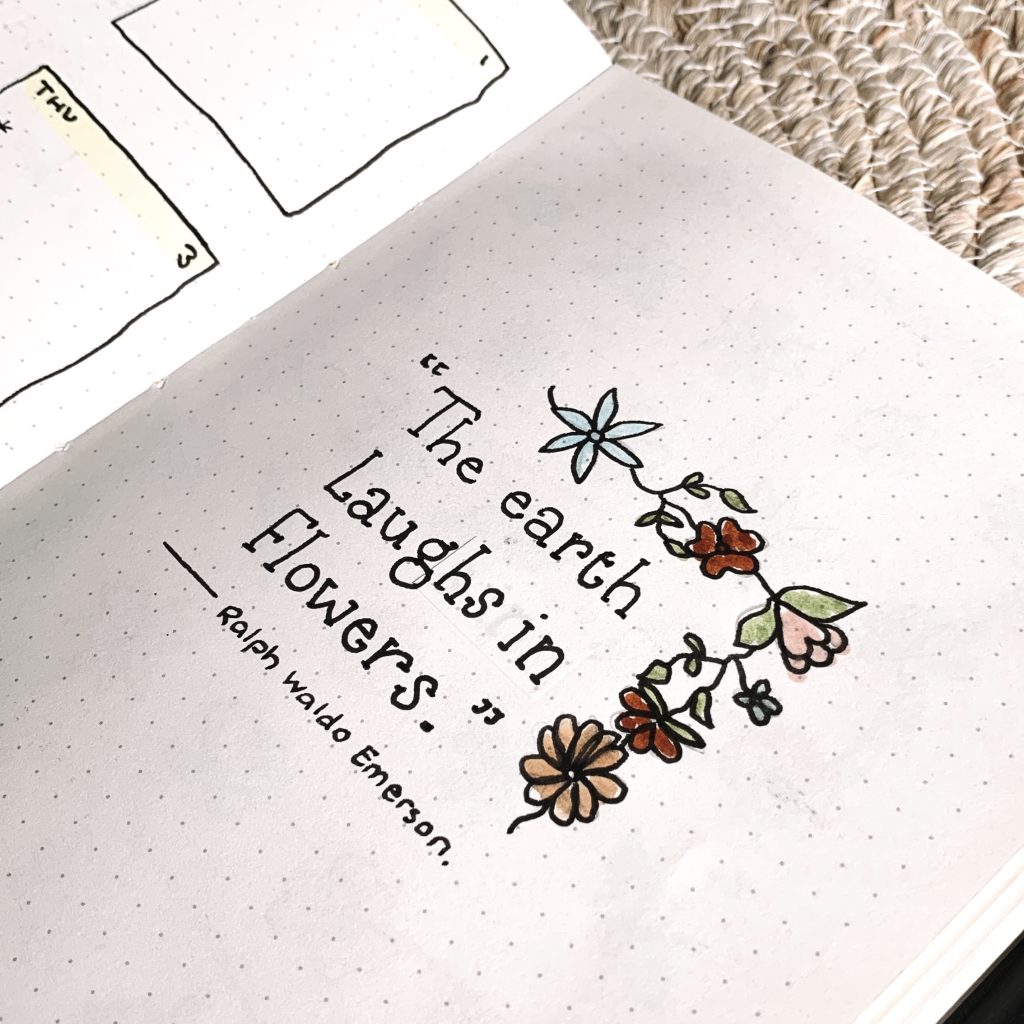 THU
3
1
“The earth
Laughs in
Flowers.”
Ralph Waldo Emerson.